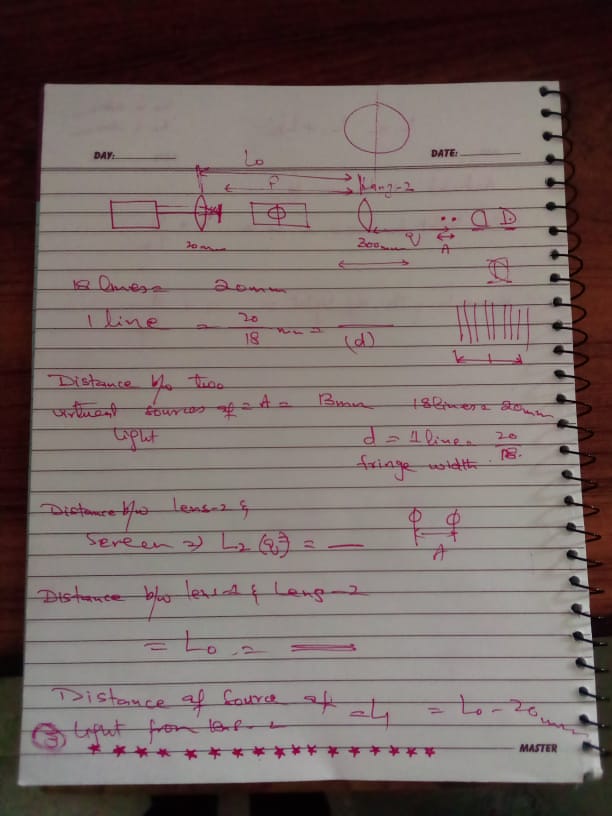 DAY: DATE:
L0
P Lens-2
Φ
20mm 300mm V A
18 lines = 20mm
1 line = 20/18 mm = (d)
Distance b/w two
virtual sources of = A = 13mm 18 lines = 20mm
light d = 1 line = 20/18
fringe width
Distance b/w lens-2 &
Screen => L2 = Φ Φ
A
Distance b/w lens-1 & Leng-2
= L0
Distance of Source of = L1 = L0 - 20mm
light from lens-2
3
MASTER